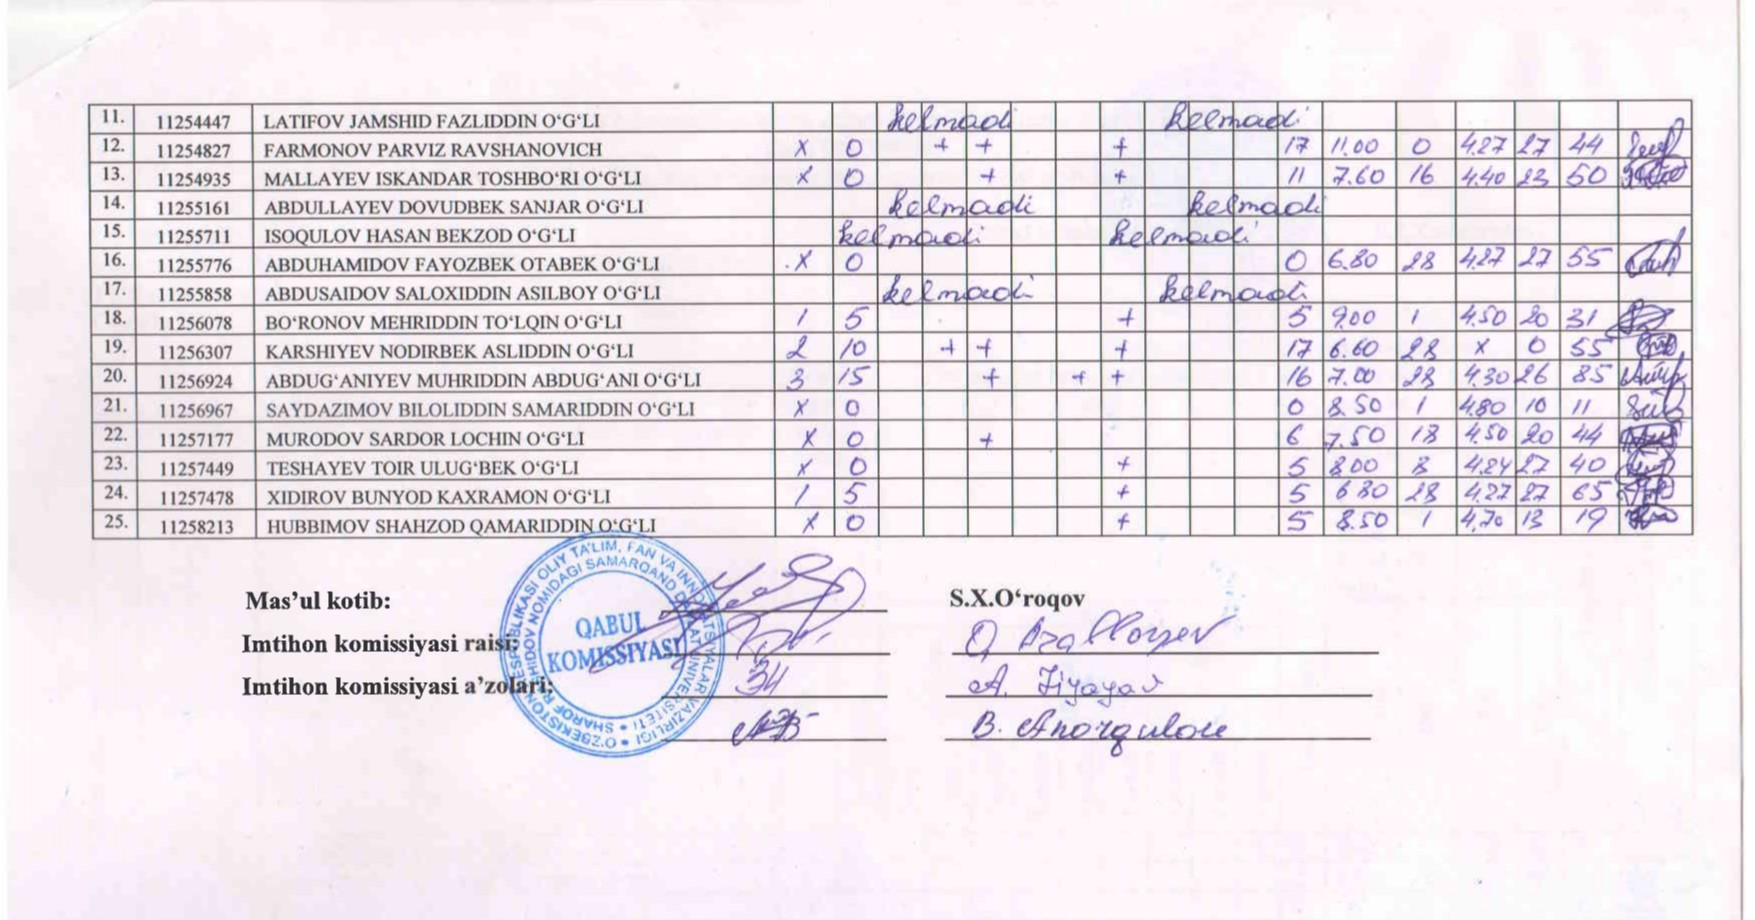 11. 11254447 LATIFOV JAMSHID FAZLIDDIN O‘G‘LI kelmadi kelmadi
12. 11254827 FARMONOV PARVIZ RAVSHANOVICH x 0 + + + 17 11.00 0 4.27 27 44
13. 11254935 MALLAYEV ISKANDAR TOSHBO‘RI O‘G‘LI x 0 + + 11 7.60 16 4.40 23 50
14. 11255161 ABDULLAYEV DOVUDBEK SANJAR O‘G‘LI kelmadi kelmadi
15. 11255711 ISOQULOV HASAN BEKZOD O‘G‘LI kelmadi kelmadi
16. 11255776 ABDUHAMIDOV FAYOZBEK OTABEK O‘G‘LI x 0 0 6.80 28 4.27 27 55
17. 11255858 ABDUSAIDOV SALOXIDDIN ASILBOY O‘G‘LI kelmadi kelmadi
18. 11256078 BO‘RONOV MEHRIDDIN TO‘LQIN O‘G‘LI 1 5 + 5 9.00 1 4.50 20 31
19. 11256307 KARSHIYEV NODIRBEK ASLIDDIN O‘G‘LI 2 10 + + + 17 6.60 28 x 0 55
20. 11256924 ABDUG‘ANIYEV MUHRIDDIN ABDUG‘ANI O‘G‘LI 3 15 + + + 16 7.00 28 4.30 26 85
21. 11256967 SAYDAZIMOV BILOLIDDIN SAMARIDDIN O‘G‘LI x 0 0 8.50 1 4.80 10 11
22. 11257177 MURODOV SARDOR LOCHIN O‘G‘LI x 0 + 6 7.50 18 4.50 20 44
23. 11257449 TESHAYEV TOIR ULUG‘BEK O‘G‘LI x 0 + 5 8.00 8 4.24 27 40
24. 11257478 XIDIROV BUNYOD KAXRAMON O‘G‘LI 1 5 + 5 6.80 28 4.27 27 65
25. 11258213 HUBBIMOV SHAHZOD QAMARIDDIN O‘G‘LI x 0 + 5 8.50 1 4.70 13 19
Mas’ul kotib: S.X.O‘roqov
Imtihon komissiyasi raisi:
Imtihon komissiyasi a’zolari: A.
B. Anorqulov
QABUL
KOMISSIYASI